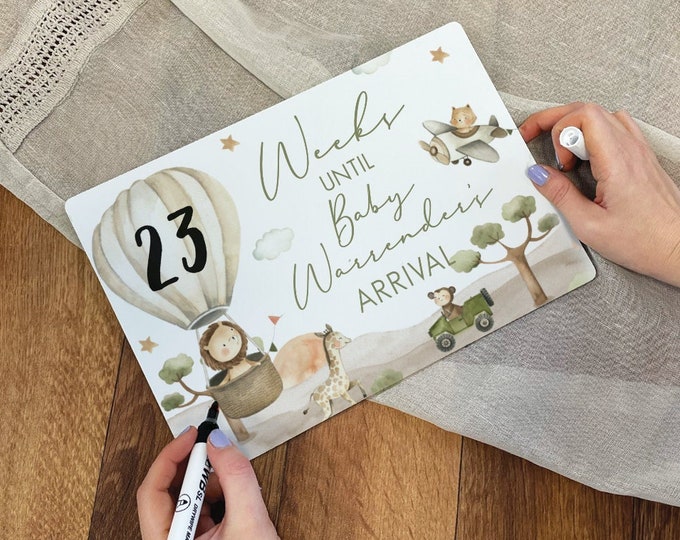 23
Weeks
UNTIL
Baby
Warrender's
ARRIVAL